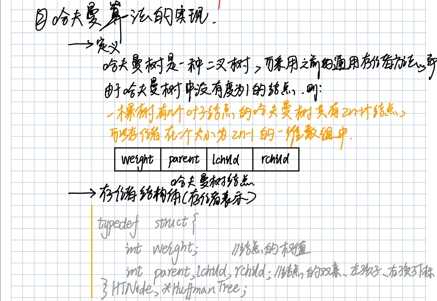 ② 哈夫曼算法的实现.
→定义
哈夫曼树是一种二叉树，可采用之前的通用存储方法，即
由于哈夫曼树中没有度为1的结点，则:
一棵树有n个叶子结点的哈夫曼树共有2n-1个结点，
可以存储在一个大小为2n-1的一维数组中.
weight parent lchild rchild
哈夫曼树结点
→存储结构体(存储表示)
typedef struct{
int weight; //结点的权值
int parent,lchild,rchild; //结点的双亲、左孩子、右孩子下标
}HTNode,*HuffmanTree;